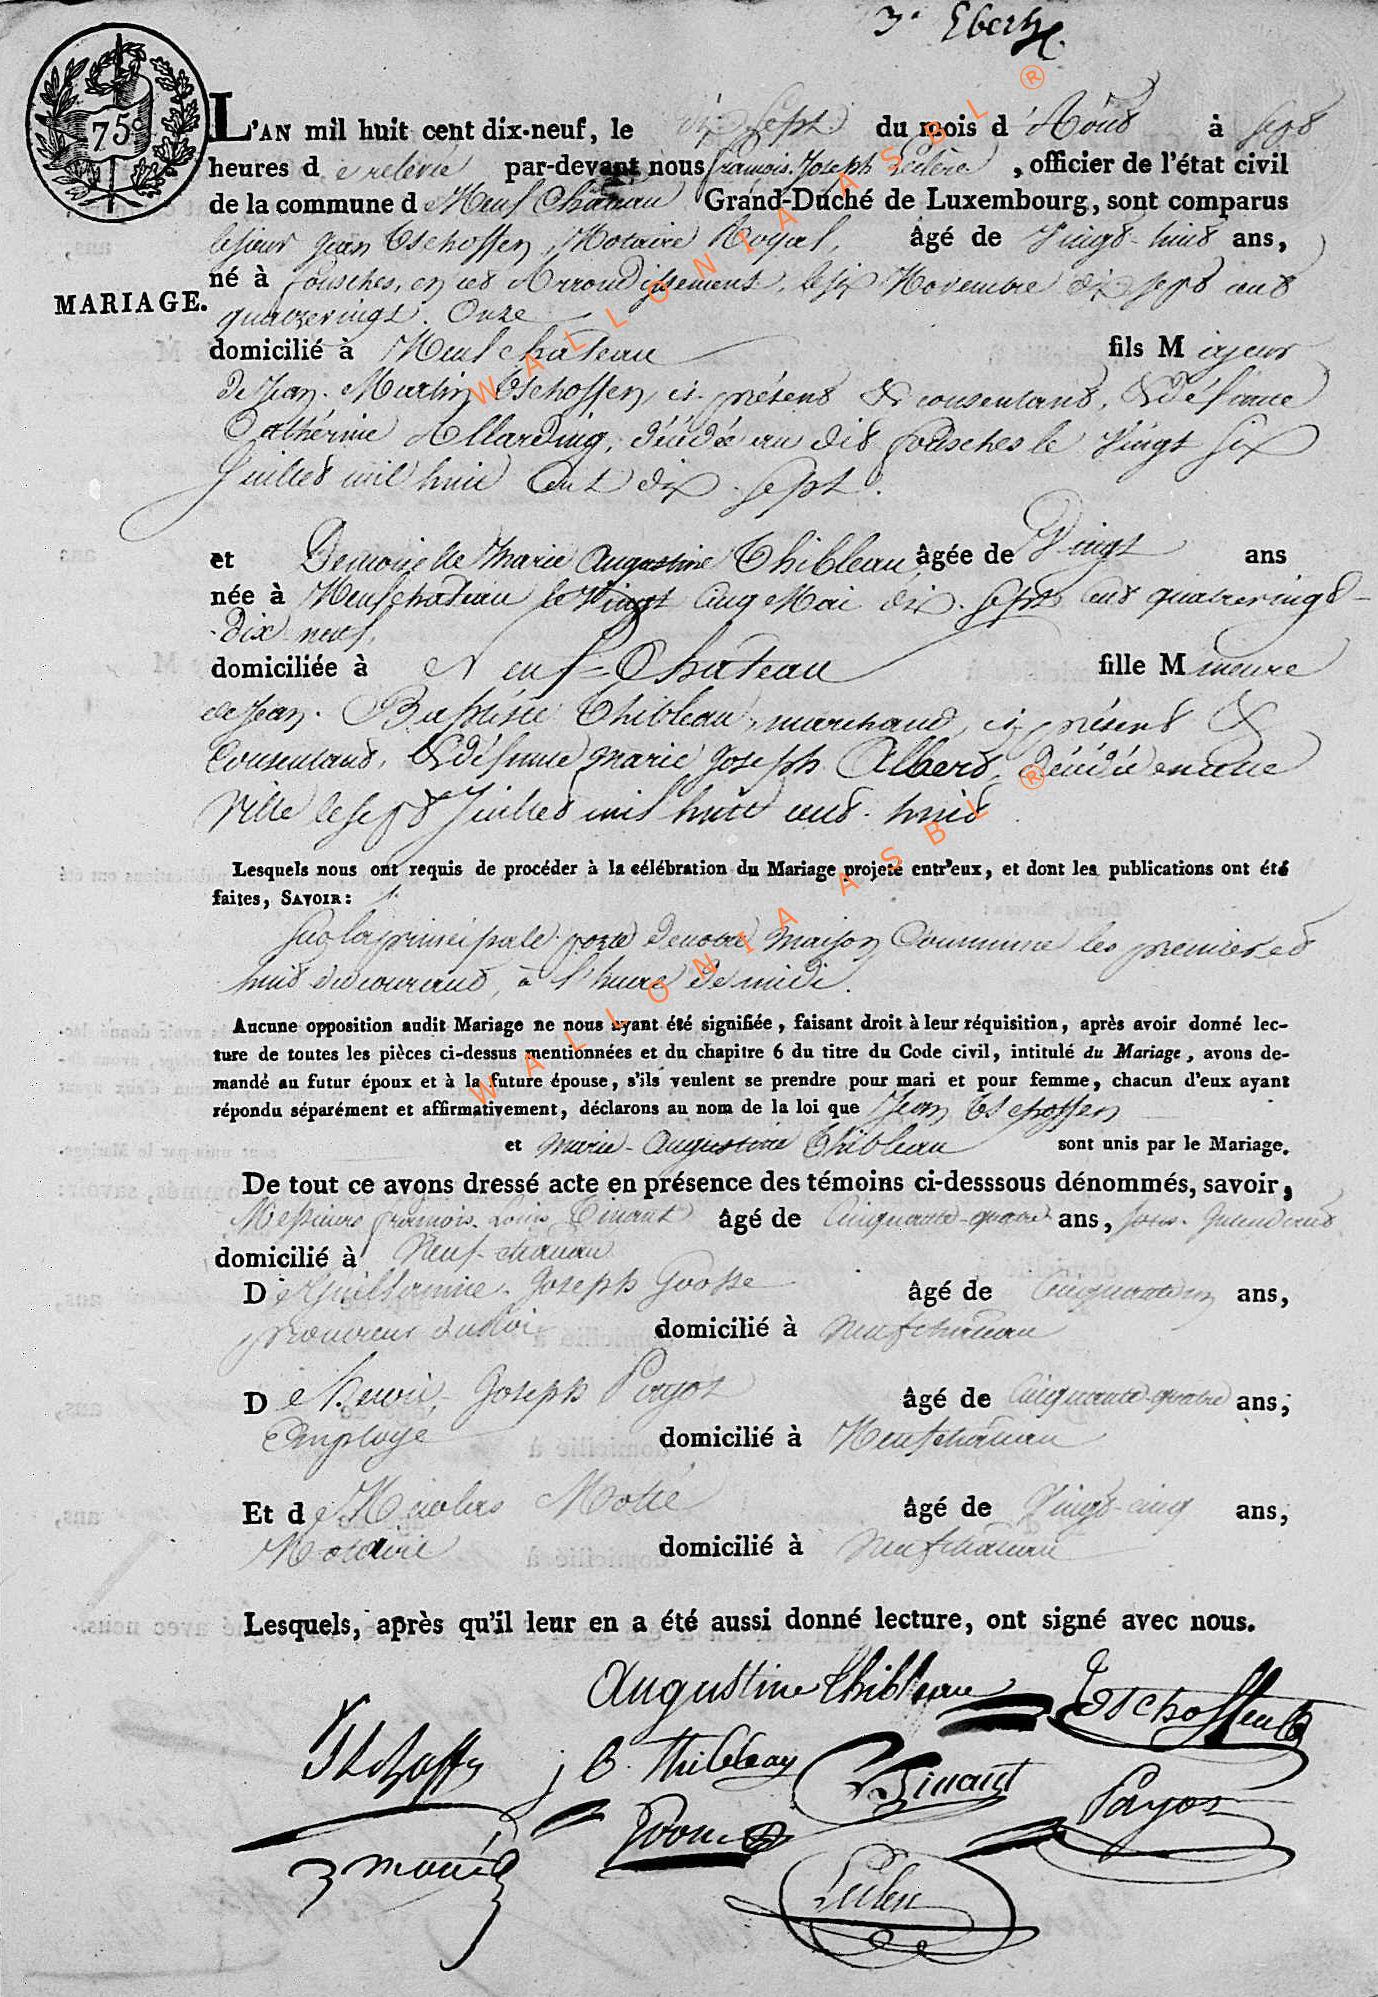 3e Ebert
75c
L'AN mil huit cent dix-neuf, le dix Sept du mois d'Août à sept
heures de relevée par-devant nous françois Joseph Leclère, officier de l'état civil
de la commune de Neuf Château Grand-Duché de Luxembourg, sont comparus
le sieur Jean Tschoffen, Notaire Royal, âgé de Vingt-huit ans,
né à fousches, en cet Arrondissement, le six Novembre dix sept cent
MARIAGE.
quatrevingt. Onze
domicilié à Neufchateau fils Majeur
de Jean. Martin Tschoffen, ici présent & consentant, & défunte
Cathérine Allarding, décédée au dit fousches le Vingt six
Juillet mil huit Cent dix. Sept.
et Demoiselle Marie Augustine Thibleau, âgée de Vingt ans
née à Neufchateau le Vingt Cinq Mai dix. sept cent quatrevingt-
dix neuf,
domiciliée à Neuf-Château fille Mineure
de Jean. Baptiste Thibleau, marchand, ici présent &
Consentant, & défunte Marie Joseph Albert, décédée en cette
Ville le sept Juillet mil huit cent. huit
Lesquels nous ont requis de procéder à la célébration du Mariage projeté entr'eux, et dont les publications ont été
faites, SAVOIR:
Sur la principale porte de notre Maison Commune les premier et
huit du courant, à l'heure de midi.
Aucune opposition audit Mariage ne nous ayant été signifiée, faisant droit à leur réquisition, après avoir donné lec-
ture de toutes les pièces ci-dessus mentionnées et du chapitre 6 du titre du Code civil, intitulé du Mariage, avons de-
mandé au futur époux et à la future épouse, s'ils veulent se prendre pour mari et pour femme, chacun d'eux ayant
répondu séparément et affirmativement, déclarons au nom de la loi que Jean Tschoffen
et Marie-Augustine Thibleau sont unis par le Mariage.
De tout ce avons dressé acte en présence des témoins ci-desssous dénommés, savoir,
Messieurs françois. Louis Tinant âgé de Cinquante-quatre ans, Sous-Intendant
domicilié à Neuf-chateau
De Guillaume. Joseph Goosse âgé de Cinquante un ans,
procureur du Roi domicilié à Neufchateau
De Henri. Joseph Payot âgé de Cinquante-quatre ans;
Employé domicilié à Neufchateau
Et de Nicolas Motté âgé de Vingt-cinq ans,
Notaire domicilié à Neufchateau
Lesquels, après qu'il leur en a été aussi donné lecture, ont signé avec nous.
Augustine Thibleau Tschoffen
Tschoffen j B. Thibleau Tinant Payot
Motté Leclere
WALLONIA ASBL ®
WALLONIA ASBL ®